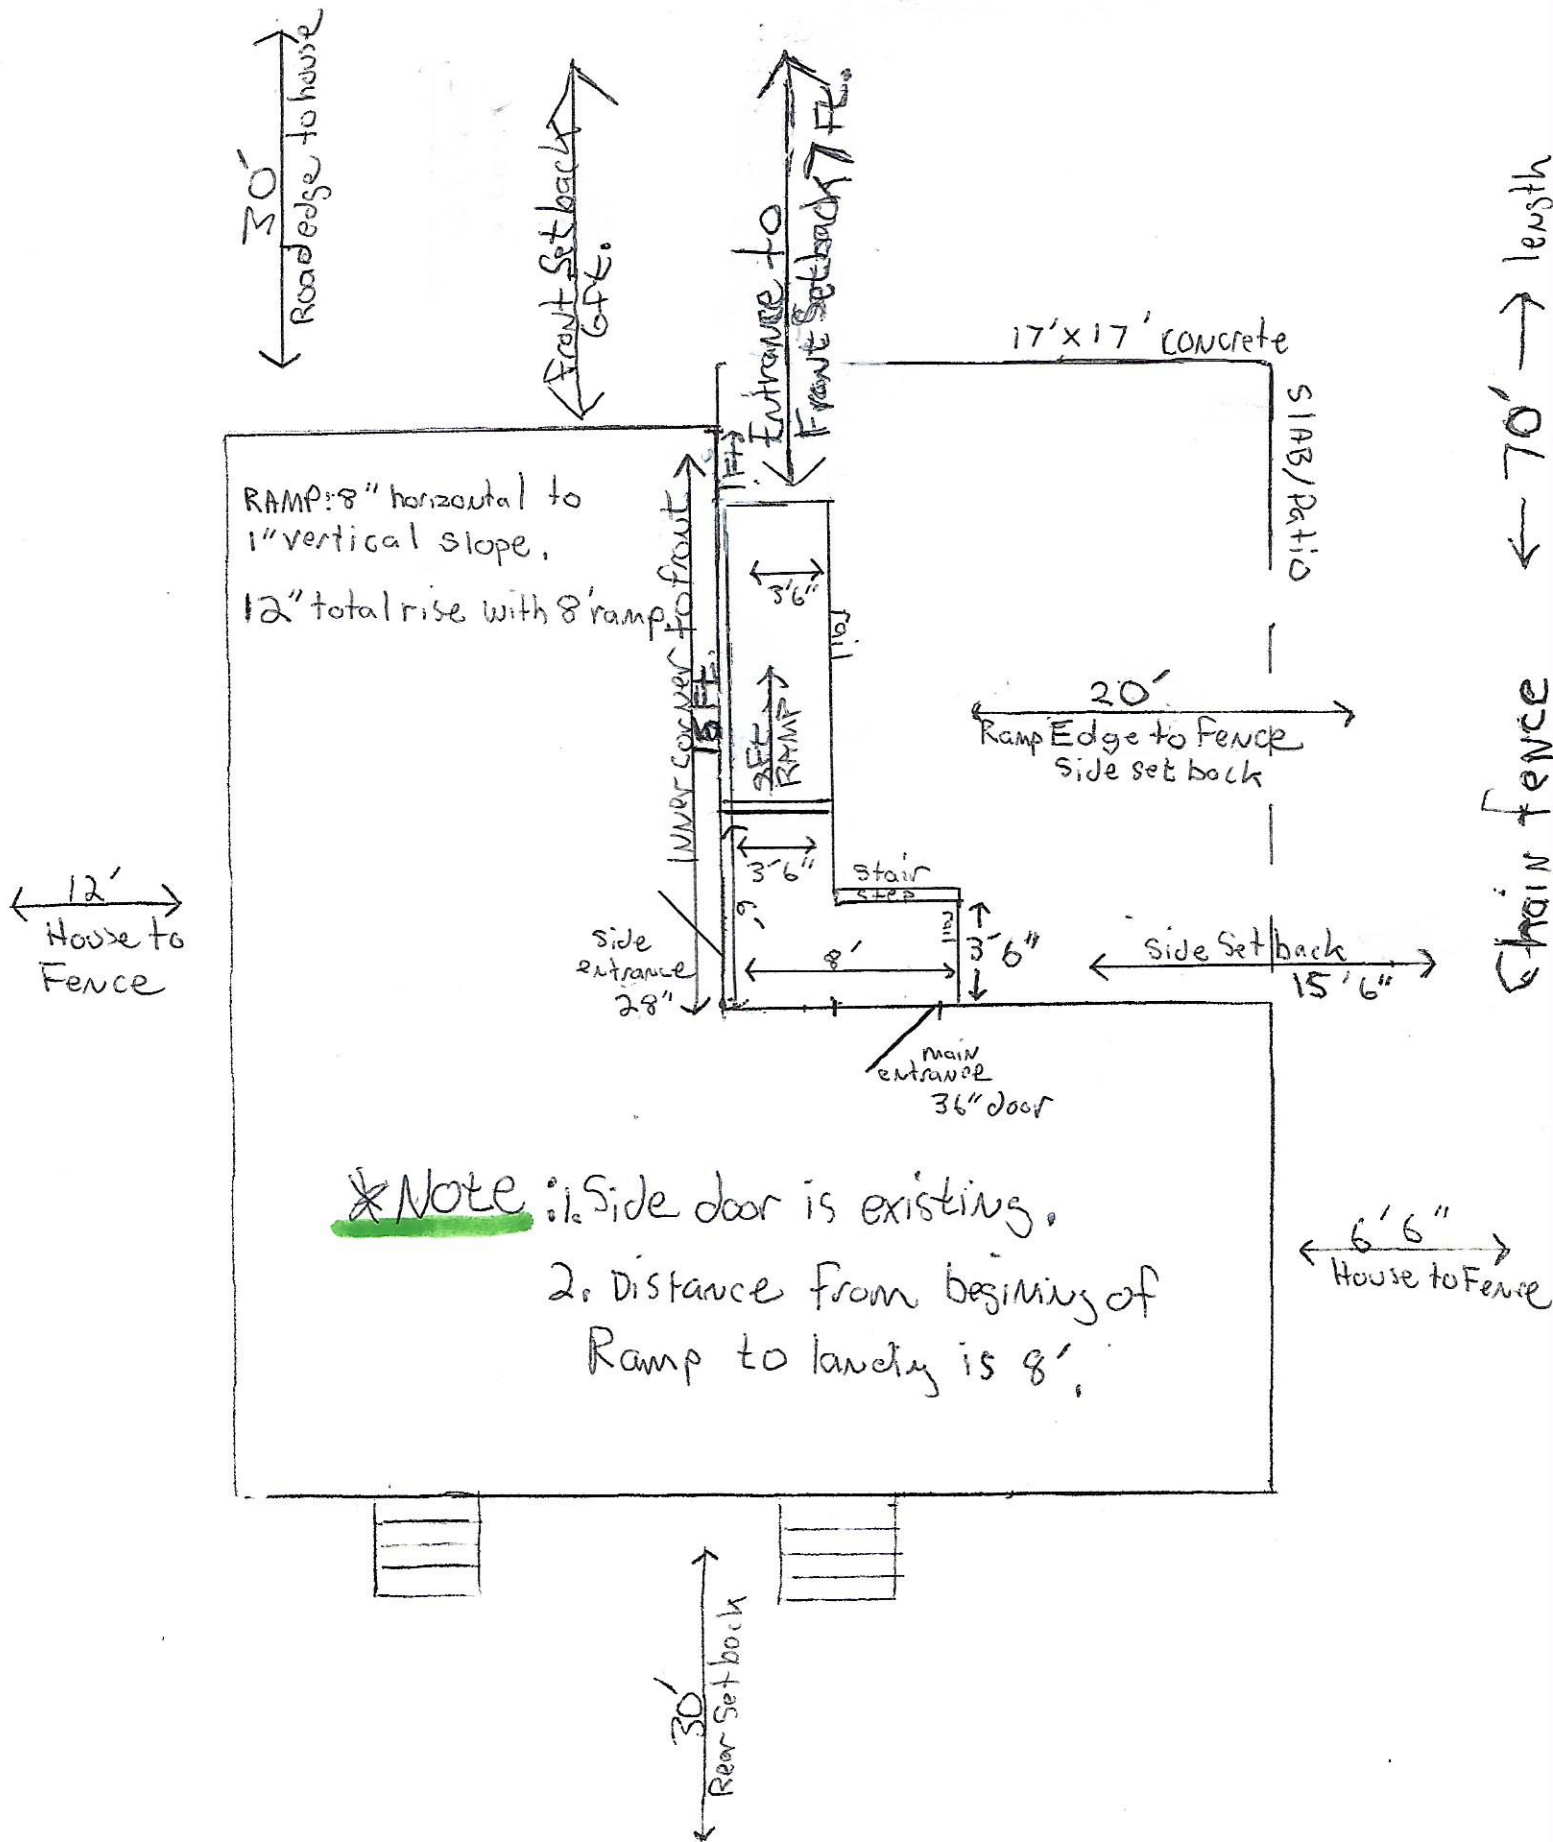 30'
Road edge to house
Front Setback
6Ft.
Entrance to
Front Setback 7 Ft.
17'x17' concrete
SlAB/Patio
← 70' → length
Chain fence
RAMP: 8" horizontal to
1" vertical slope.
12" total rise with 8' ramp.
1 Ft.
Inner corner to front
15 Ft.
3'6"
rail
RAMP
20'
Ramp Edge to Fence
Side set back
12'
House to
Fence
3'6"
stair
step
6'
rail
3'6"
8'
side
entrance
28"
Side Set back
15'6"
main
entrance
36" door
*Note: 1. Side door is existing.
2. Distance from begining of
Ramp to landing is 8'.
6'6"
House to Fence
30'
Rear Setback